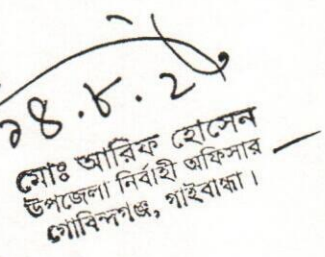 মোঃ আরিফ হোসেন
উপজেলা নির্বাহী অফিসার
গোবিন্দগঞ্জ, গাইবান্ধা।